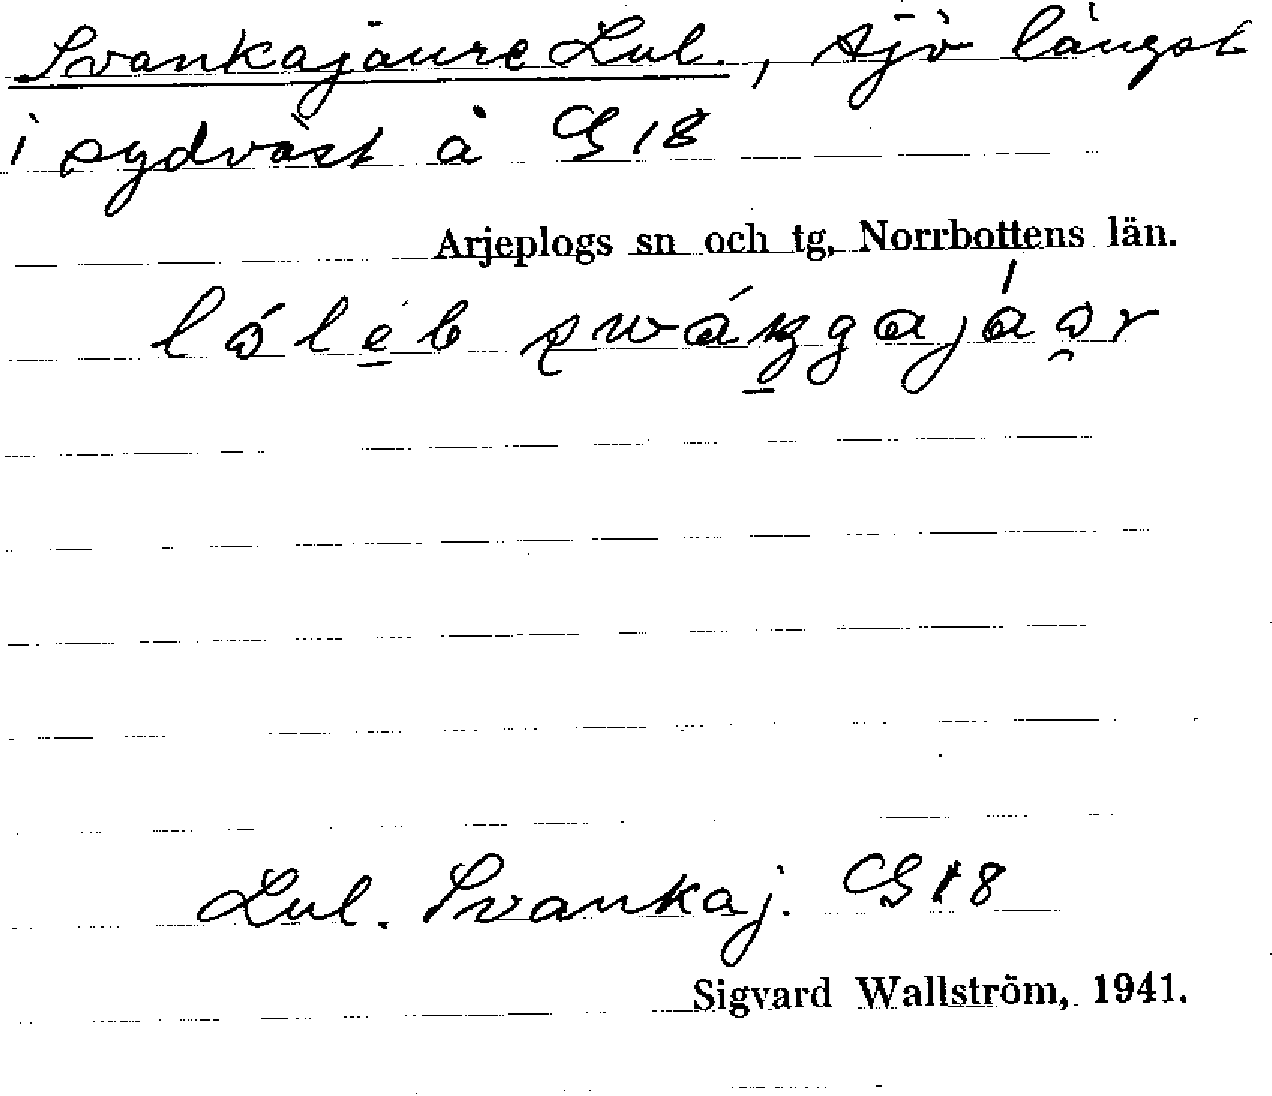 Svankajaure Lul., sjö längst
i sydväst å G 18
Arjeplogs sn och tg, Norrbottens län.
Lul. Svankaj. G18
Sigvard Wallström, 1941.